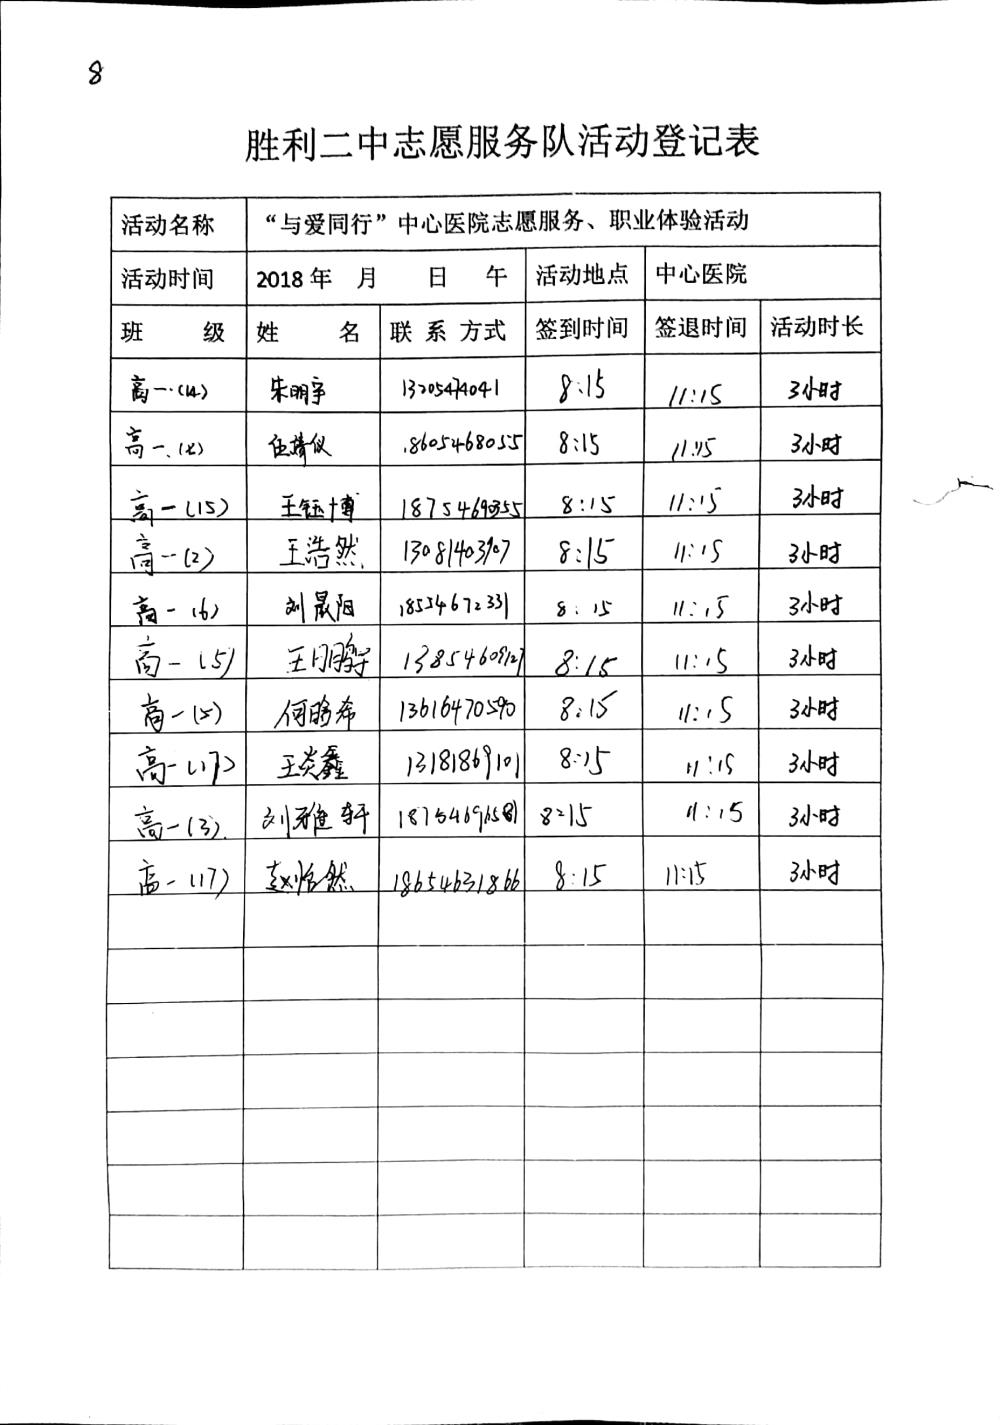 8
胜利二中志愿服务队活动登记表
活动名称 “与爱同行”中心医院志愿服务、职业体验活动
活动时间 2018年 月 日 午 活动地点 中心医院
班 级 姓 名 联 系 方式 签到时间 签退时间 活动时长
高一.(14) 朱明宇 13205474041 8:15 11:15 3小时
高一. 18605468055 8:15 11:15 3小时
高一(15) 王钰博 8:15 11:15 3小时
高一(2) 王浩然. 8:15 11:15 3小时
高一(6) 刘晟阳 18554672331 8:15 11:15 3小时
高一(5) 8:15 11:15 3小时
高一(5) 13616470590 8:15 11:15 3小时
高一(17) 王炎鑫 13181869101 8:15 11:15 3小时
高一(3). 刘雅轩 8:15 11:15 3小时
高一(17) 赵怡然 18654631866 8:15 11:15 3小时